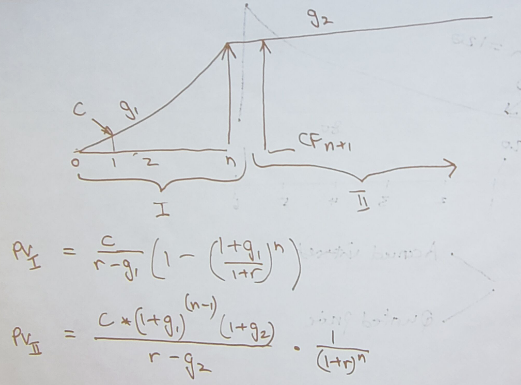 g₂
C
g₁
0 1 2 n
CFₙ₊₁
I
II
PV_I = C/(r-g₁) (1 - ((1+g₁)/(1+r))ⁿ)
PV_II = C*(1+g₁)⁽ⁿ⁻¹⁾(1+g₂)/(r-g₂) · 1/(1+r)ⁿ